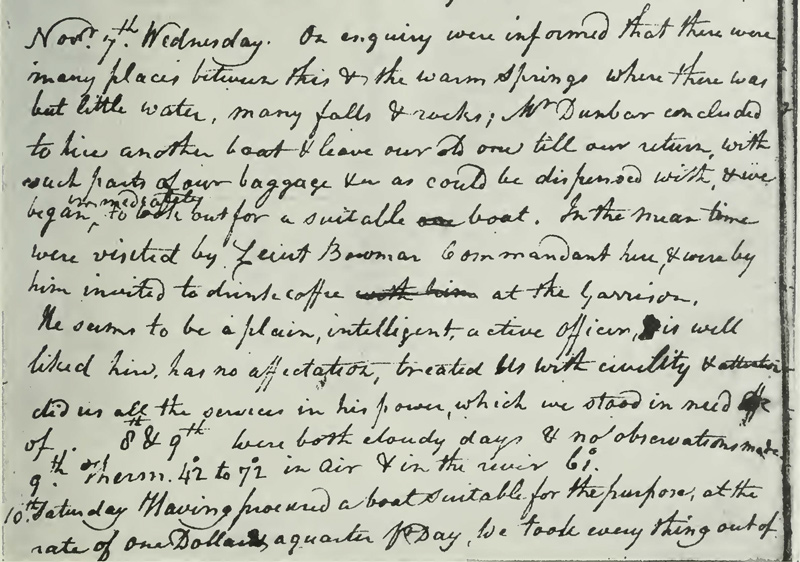 Novr. 7th. Wednesday. On enquiry were informed that there were
many places between this & the warm springs where there was
but little water, many falls & rocks; Mr Dunbar concluded
to hire another boat & leave our old one till our return, with
such parts of our baggage &c as could be dispensed with, & we
immediately
began, to look out for a suitable one boat. In the mean time
were visited by Leiut Bowmar Commandant here, & were by
him invited to drink coffee with him at the Garrison.
He seems to be a plain, intelligent, active officer, is well
liked here, has no affectation, treated us with civility & attention
did us all the services in his power, which we stood in need
of. 8th & 9th were both cloudy days & no observations made.
9th. Therm. 42° to 72° in air & in the river 61°.
10th. Saturday Having procured a boat suitable for the purpose, at the
rate of one Dollar & a quarter pr Day, We took every thing out of